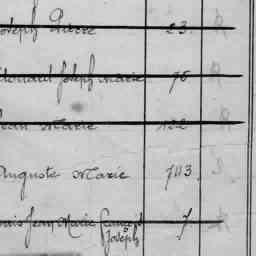 Joseph Pierre 23.
Edouard Joseph Marie 76
Jean Marie 122
Auguste Marie 713.
Louis Jean Marie François 7
Joseph